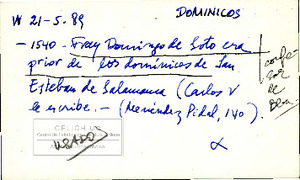 DOMINICOS
W 21-5.89
- 1540 - Fray Domingo de Soto era
prior de los domínicos de San
Esteban de Salamanca (Carlos V
le escribe. - (Menéndez Pidal, 140).
confe
sor
de
CELICH UC
USADO
α